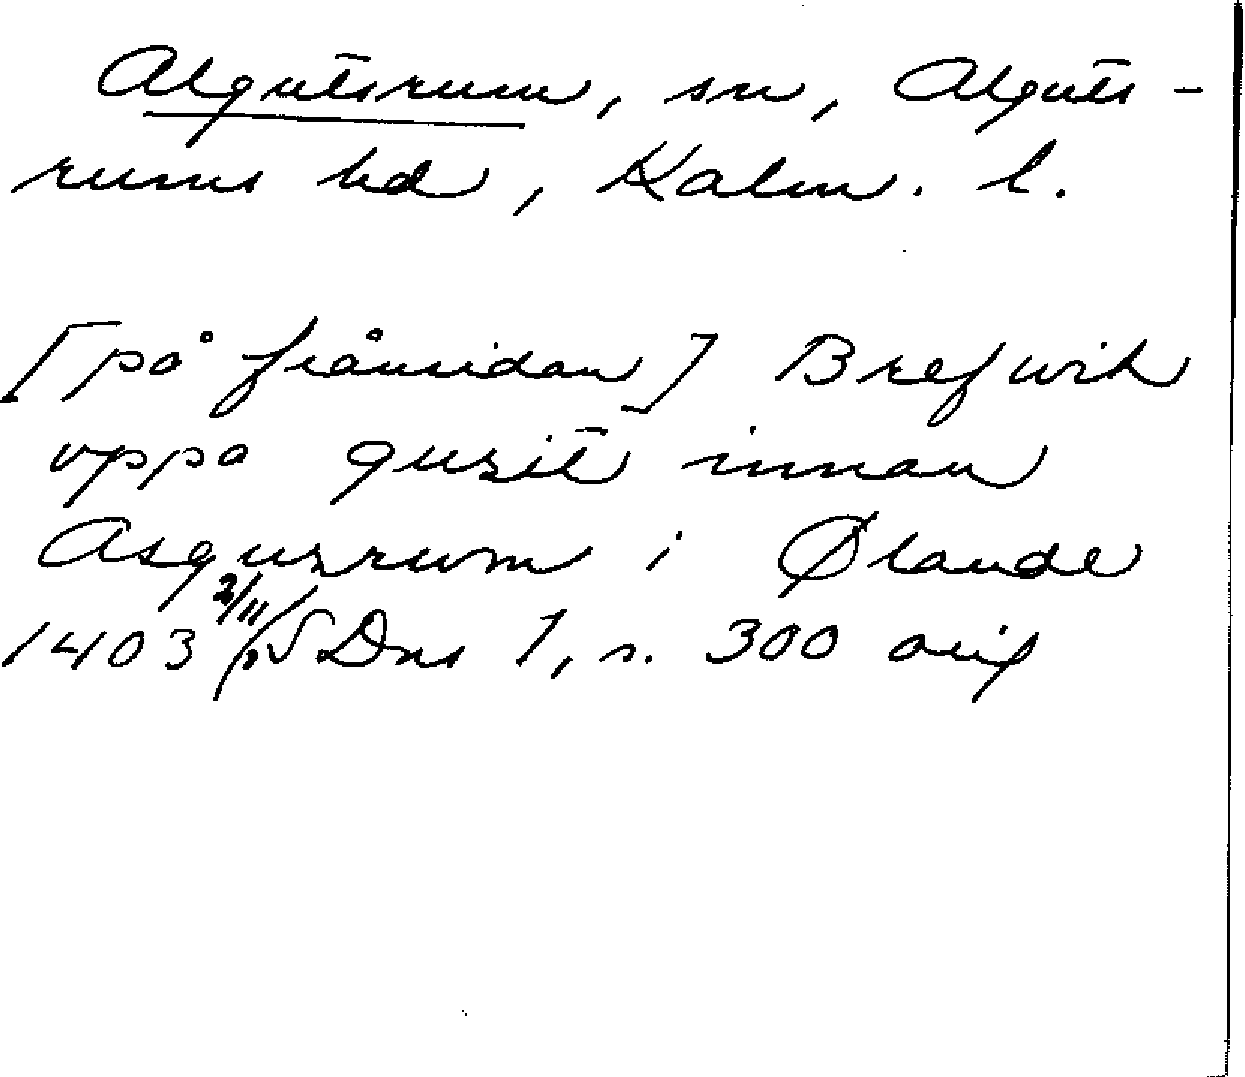 Algutsrum, sn, Alguts-
rums hd, Kalm. l.
[på frånsidan] Brefwik
vppa quszit innan
Asguzrum i Ølande
1403 2/11 SDns 1, s. 300 orig